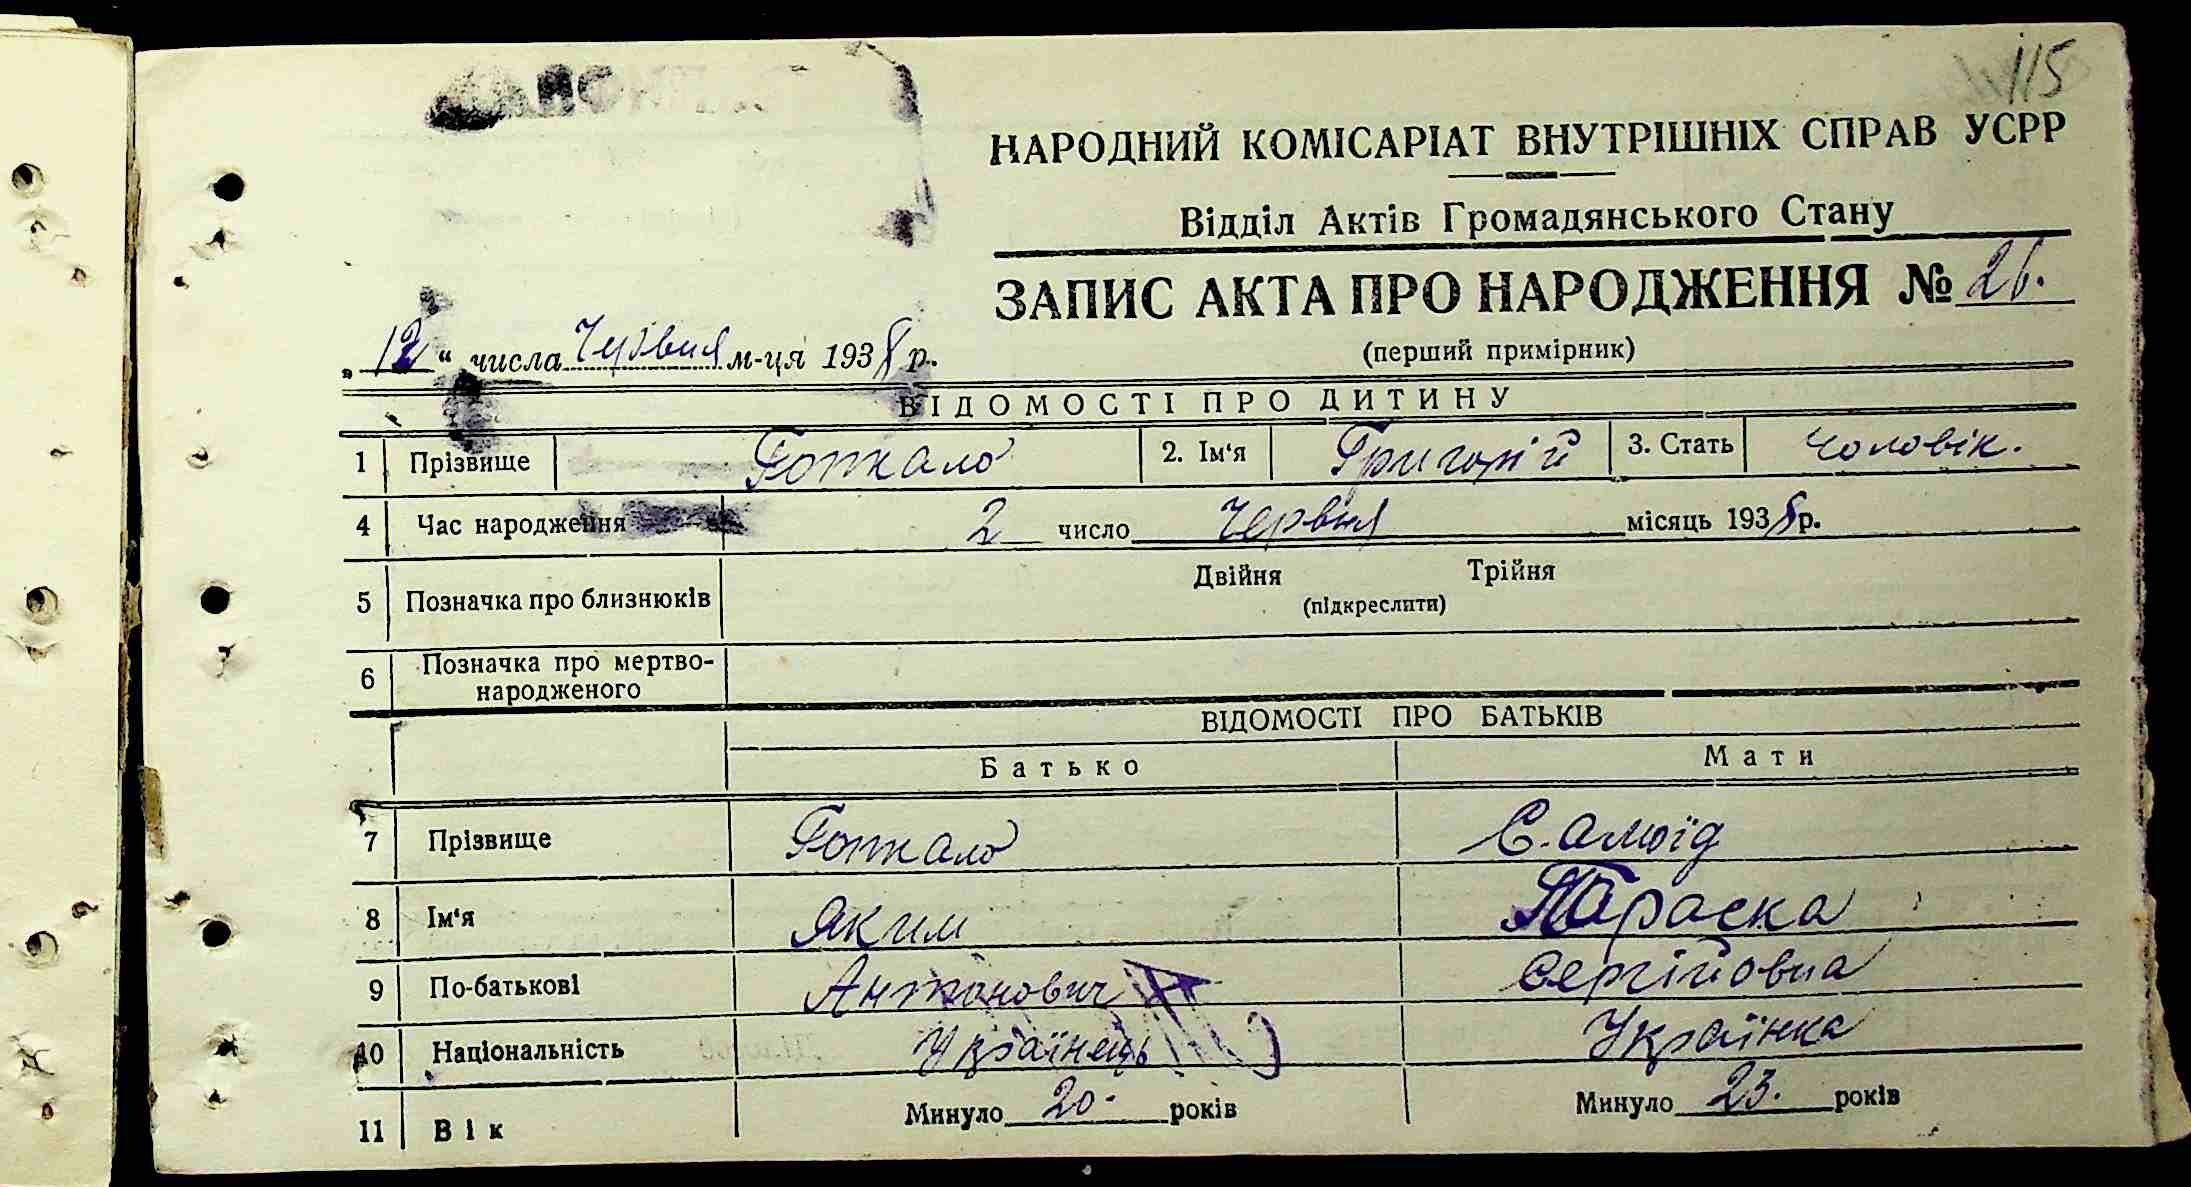 115
НАРОДНИЙ КОМІСАРІАТ ВНУТРІШНІХ СПРАВ УСРР
Відділ Актів Громадянського Стану
ЗАПИС АКТА ПРО НАРОДЖЕННЯ № 26.
(перший примірник)
„12“ числа Червня м-ця 1938 р.
ВІДОМОСТІ ПРО ДИТИНУ
1 Прізвище Гопкало 2. Ім‘я Григорій 3. Стать чоловік.
4 Час народження 2 число Червня місяць 1938 р.
5 Позначка про близнюків Двійня Трійня
(підкреслити)
6 Позначка про мертво-
народженого
ВІДОМОСТІ ПРО БАТЬКІВ
Батько Мати
7 Прізвище Гопкало Самоїд
8 Ім‘я Яким Параска
9 По-батькові Антонович Сергійовна
10 Національність Українець Українка
11 Вік Минуло 20. років Минуло 23. років